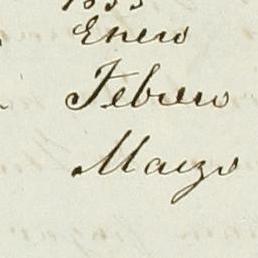 1855
Enero
Febrero
Marzo